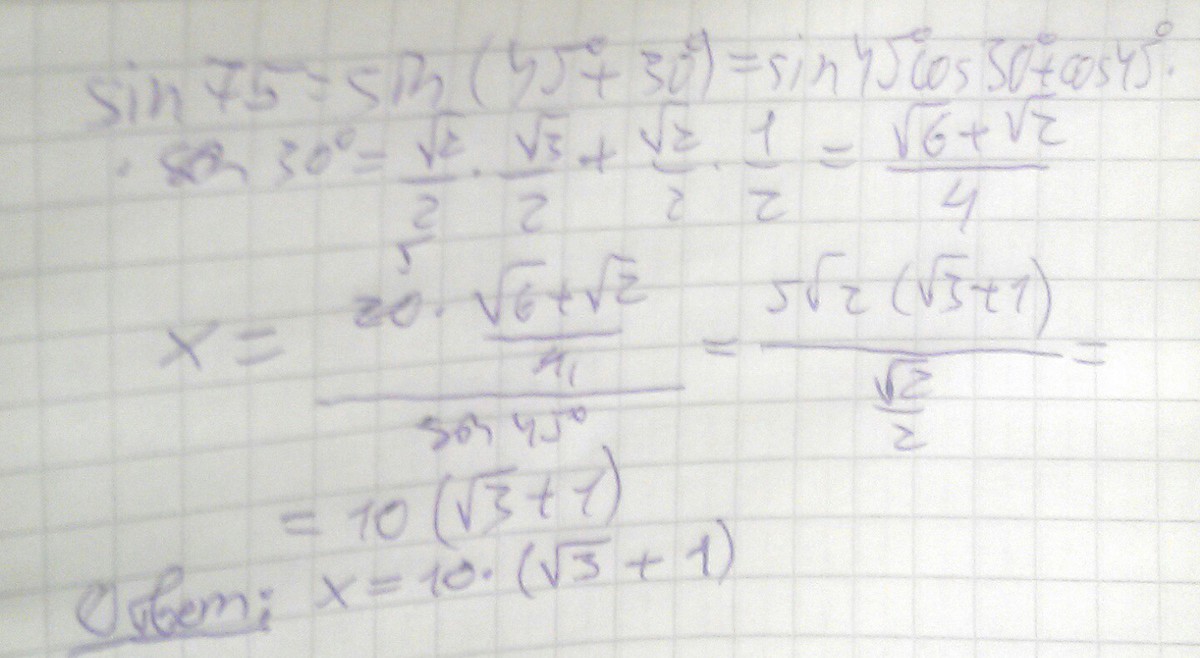 sin 75 = sin (45° + 30°) = sin 45° cos 30° + cos 45° ·
· sin 30° = √2/2 · √3/2 + √2/2 · 1/2 = (√6 + √2)/4
5
x = (20 · (√6 + √2)/4)/(sin 45°) = (5√2 (√3 + 1))/(√2/2) =
= 10 (√3 + 1)
Ответ: x = 10 · (√3 + 1)